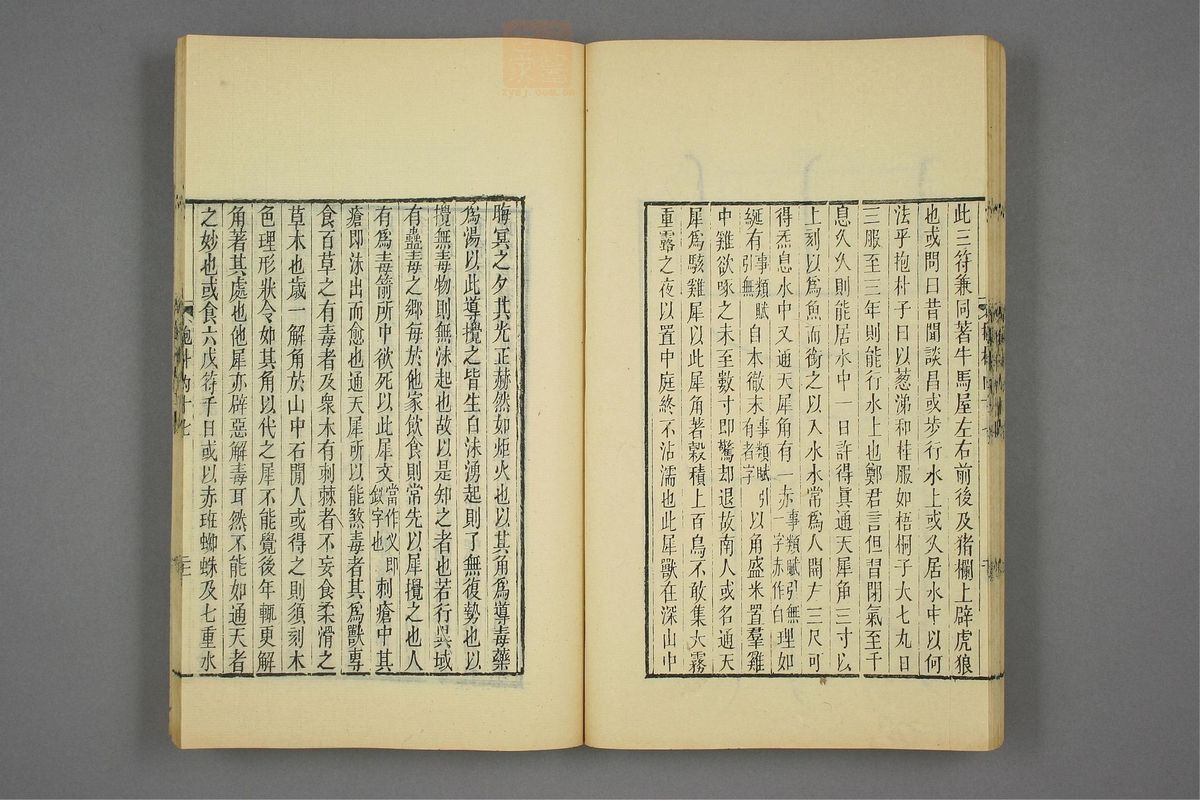 此三符兼同著牛馬屋左右前後及猪欄上辟虎狼
也或問曰昔聞談昌或步行水上或久居水中以何
法乎抱朴子曰以葱涕和桂服如梧桐子大七丸日
三服至三年則能行水上也鄭君言但習閉氣至千
息久久則能居水中一日許得眞通天犀角三寸以
上刻以爲魚而銜之以入水水常爲人開方三尺可
得炁息水中又通天犀角有一赤事類賦引無一字赤作白理如
綖有事類賦引無自本徹末事類賦引有者字以角盛米置羣雞
中雞欲啄之未至數寸即驚却退故南人或名通天
犀爲駭雞犀以此犀角著穀積上百鳥不敢集大霧
重露之夜以置中庭終不沾濡也此犀獸在深山中
晦冥之夕其光正赫然如炬火也以其角爲導毒藥
爲湯以此導攪之皆生白沫湧起則了無復勢也以
攪無毒物則無沫起也故以是知之者也若行異域
有蠱毒之鄉每於他家飲食則常先以犀攪之也人
有爲毒箭所中欲死以此犀文當作义即釵字也刺瘡中其
瘡即沫出而愈也通天犀所以能煞毒者其爲獸專
食百草之有毒者及衆木有刺棘者不妄食柔滑之
草木也歲一解角於山中石間人或得之則須刻木
色理形狀令如其角以代之犀不能覺後年輒更解
角著其處也他犀亦辟惡解毒耳然不能如通天者
之妙也或食六戊符千日或以赤班蜘蛛及七重水
抱朴内十七